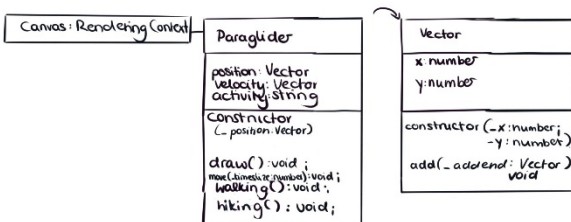 Canvas: Rendering Context
Paraglider
position: Vector
velocity: Vector
activity: string
constructor
(_position: Vector)
draw(): void;
move(_timeslice: number): void;
walking(): void;
hiking(): void;
Vector
x: number
y: number
constructor (_x: number;
_y: number)
add(_addend: Vector)
void